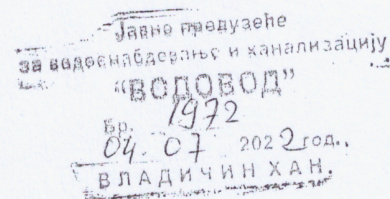 Јавно предузеће
за водоснабдевање и канализацију
"ВОДОВОД"
Бр. 1972
04. 07 2022 год.
ВЛАДИЧИН ХАН.